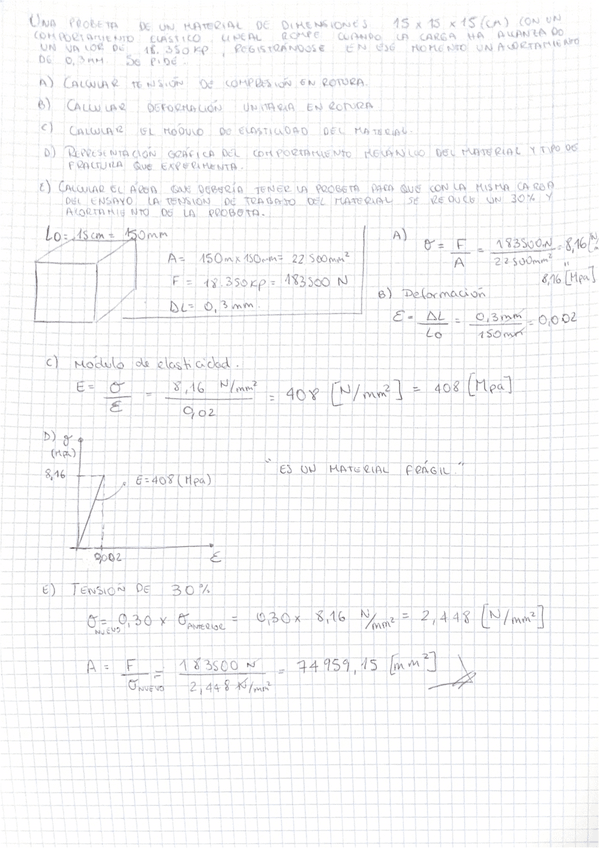 UNA PROBETA DE UN MATERIAL DE DIMENSIONES 15 x 15 x 15 (CM) CON UN
COMPORTAMIENTO ELASTICO LINEAL ROMPE CUANDO LA CARGA HA ALCANZADO
UN VALOR DE 18.350 KP, REGISTRÁNDOSE EN ESE MOMENTO UN ACORTAMIENTO
DE 0,3 MM. SE PIDE:
A) CALCULAR TENSIÓN DE COMPRESIÓN EN ROTURA.
B) CALCULAR DEFORMACIÓN UNITARIA EN ROTURA
C) CALCULAR EL MÓDULO DE ELASTICIDAD DEL MATERIAL.
D) REPRESENTACIÓN GRÁFICA DEL COMPORTAMIENTO MECÁNICO DEL MATERIAL Y TIPO DE
FRACTURA QUE EXPERIMENTA.
E) CALCULAR EL ÁREA QUE DEBERÍA TENER LA PROBETA PARA QUE CON LA MISMA CARGA
DEL ENSAYO LA TENSION DE TRABAJO DEL MATERIAL SE REDUCE UN 30% Y
ACORTAMIENTO DE LA PROBETA.
Lo = 15cm = 150mm
A = 150m x 150mm = 22500mm²
F = 18.350KP = 183500 N
ΔL = 0,3mm.
A)
σ = F/A = 183500N/22500mm² = 8,16
8,16 [MPa]
B) Deformación
ε = ΔL/Lo = 0,3mm/150mm = 0,002
C) Módulo de elasticidad.
E = σ/ε = 8,16 N/mm²/0,02 = 408 [N/mm²] = 408 [Mpa]
D) σ
(MPa)
8,16
E=408 (MPa)
"ES UN MATERIAL FRÁGIL."
0,002
ε
E) TENSION DE 30%
σ NUEVO = 0,30 x σ ANTERIOR = 0,30 x 8,16 N/mm² = 2,448 [N/mm²]
A = F/σ NUEVO = 183500 N/2,448 N/mm² = 74959,15 [mm²]